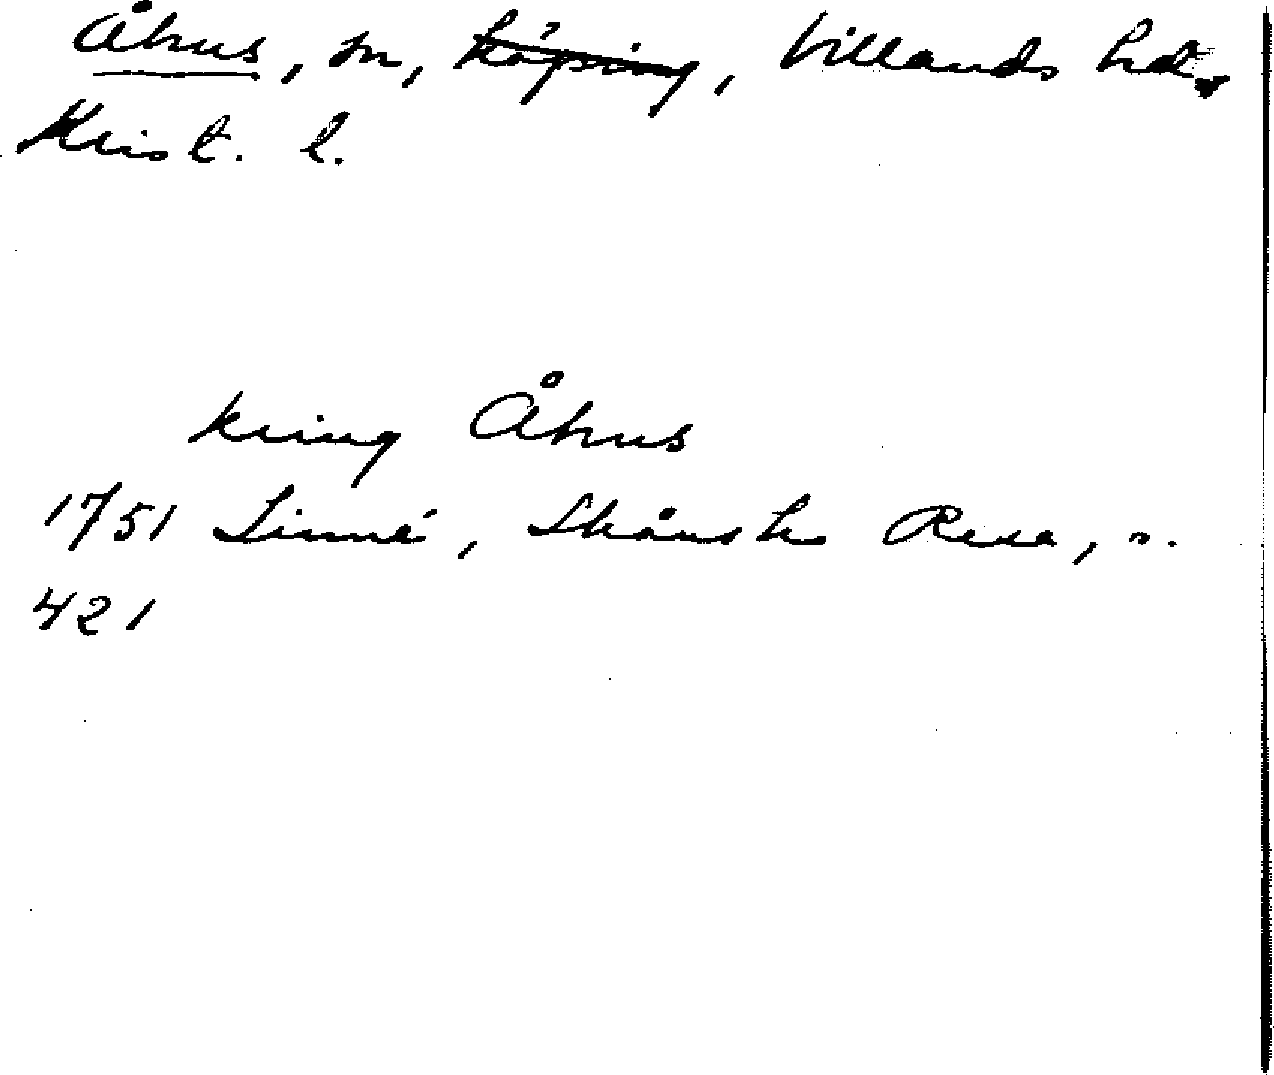 Åhus, sn, köping, Villands hd,
Krist. l.
kring Åhus
1751 Linné, Skånska Resa, s.
421